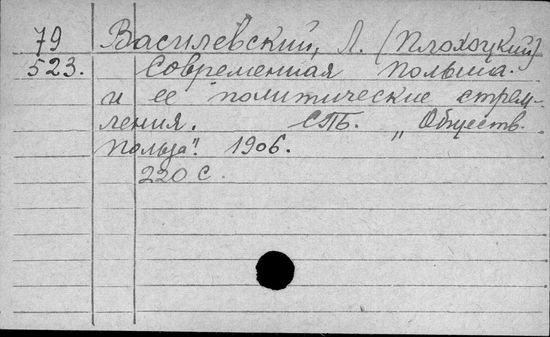 79 Василевский, Л. (Плохоцкий)
523. Современная Польша.
и ее политические стрем-
ления. СПБ. „Обществ.
польза". 1906.
220 с.